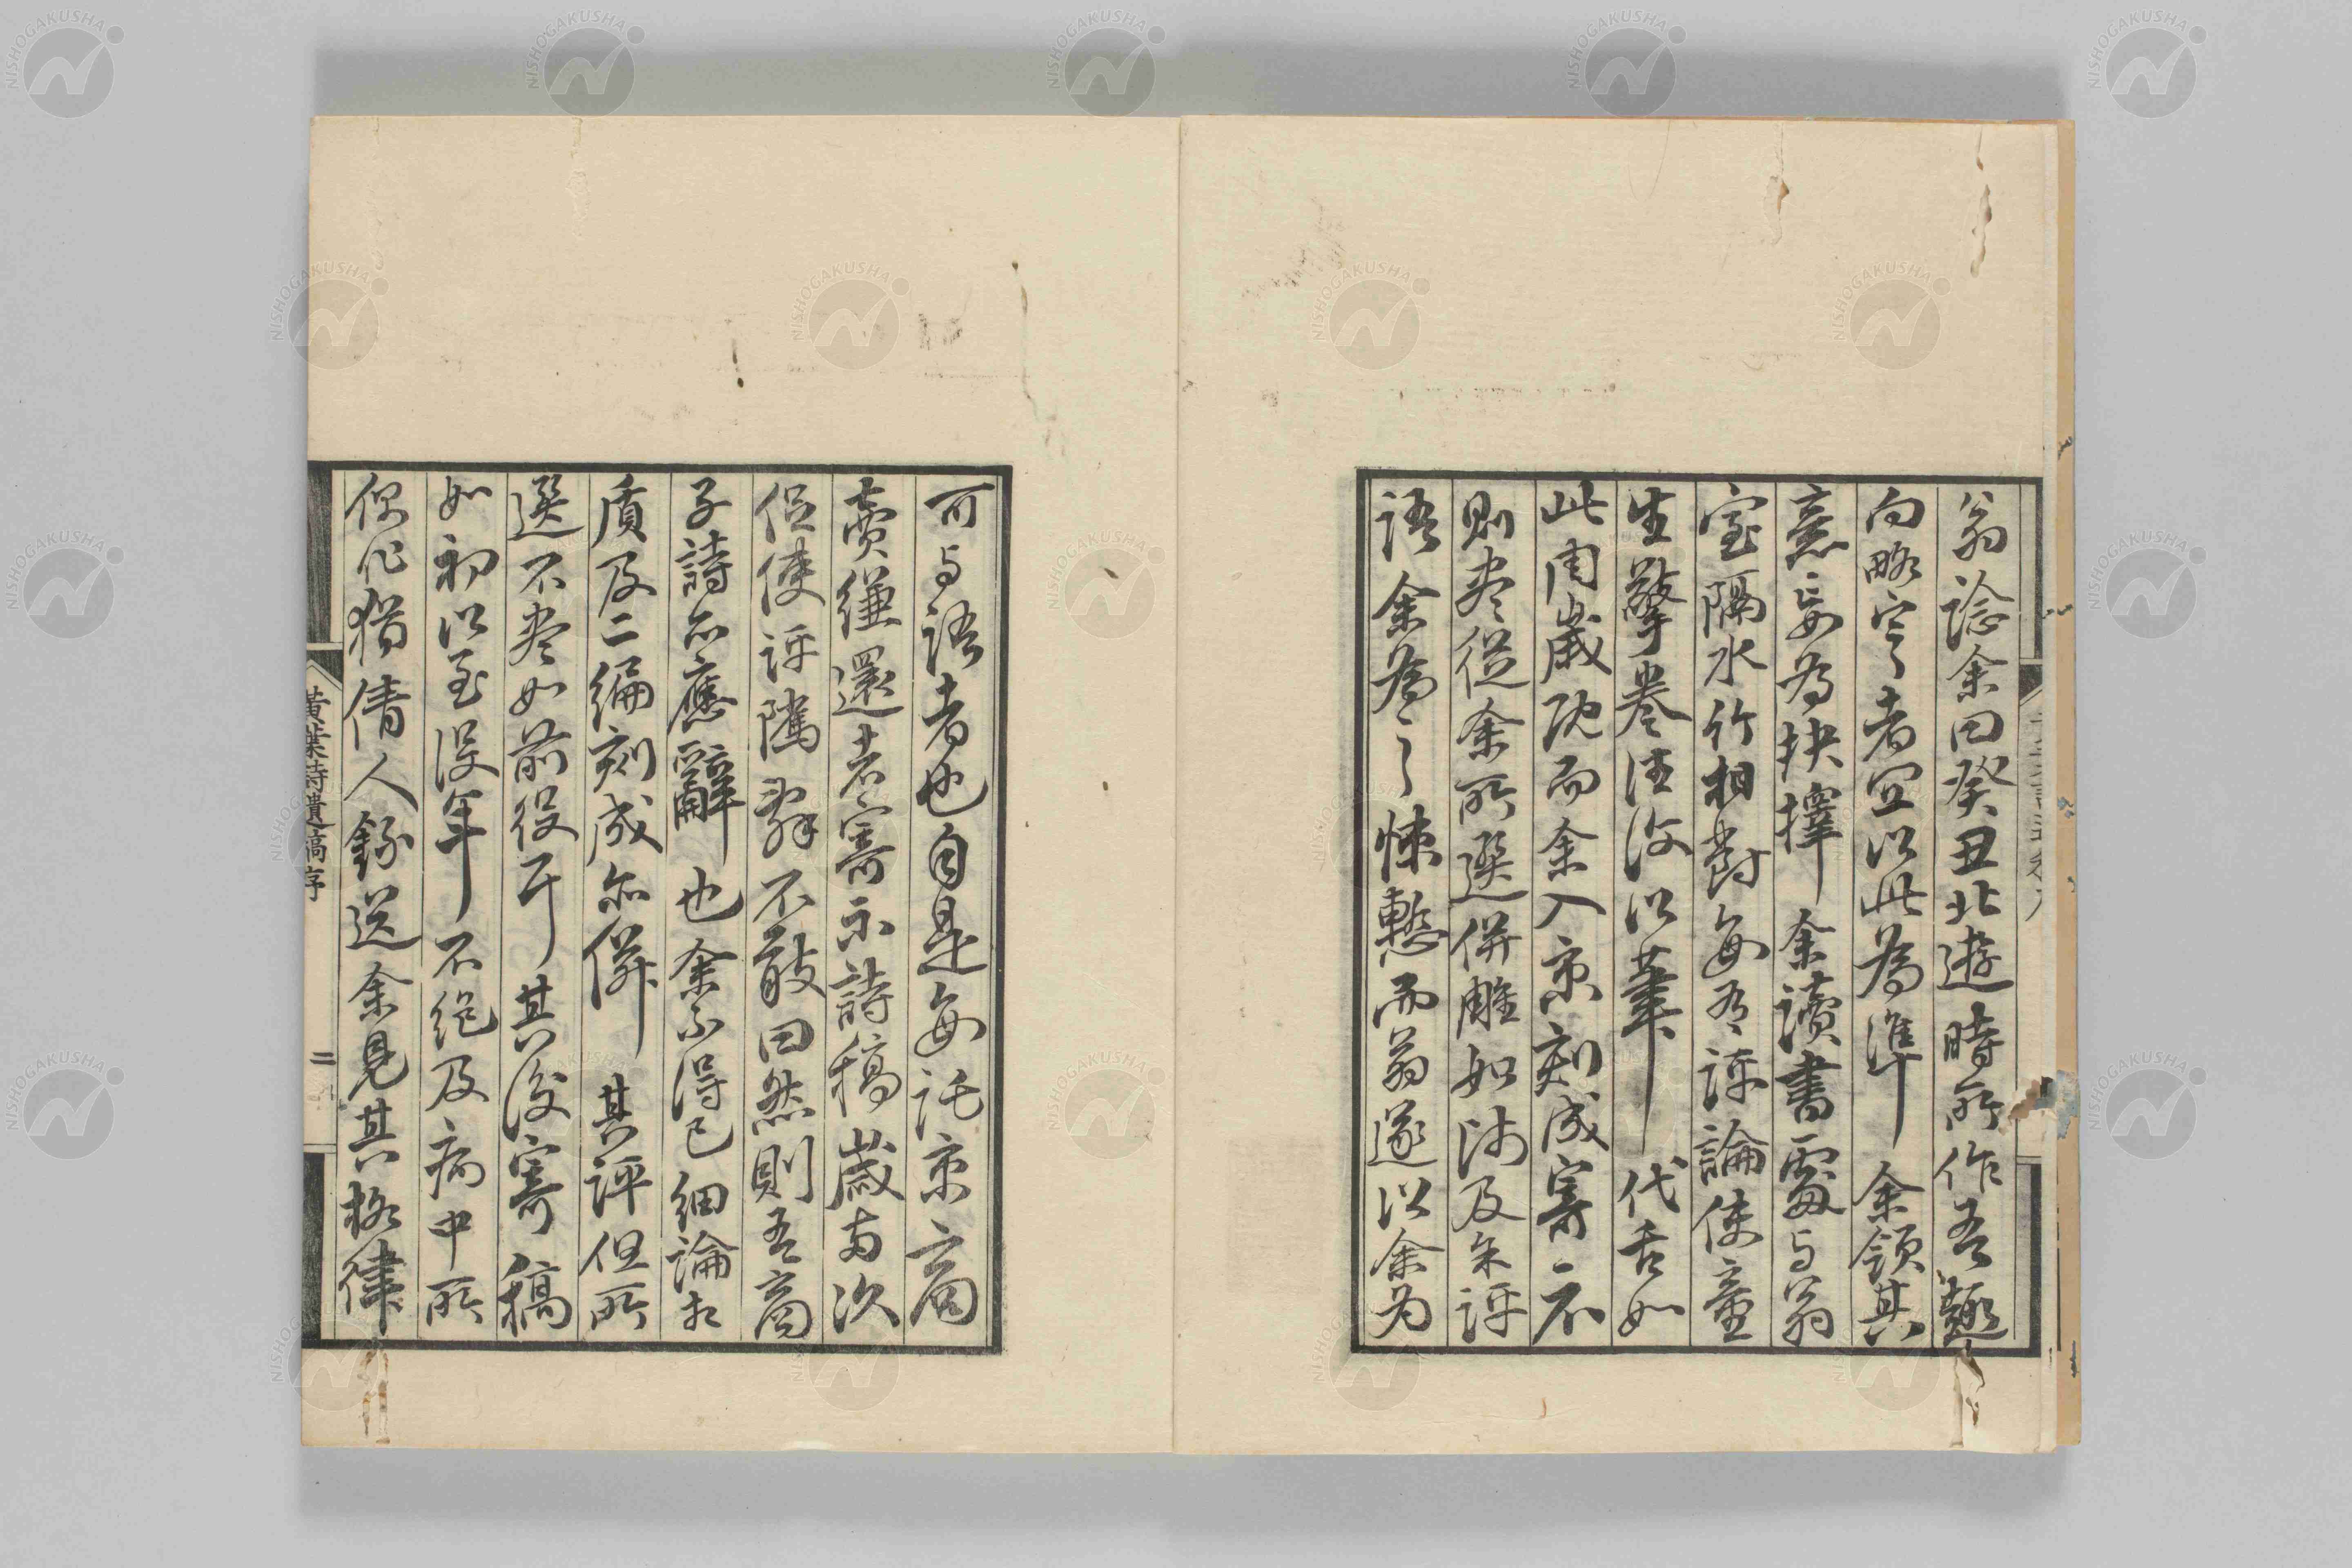 翁諗余曰癸丑北遊時所作吾趣
向略定者宜以此為準余領其
意妄為抉擇余讀書處与翁
室隔水竹相對每有評論使童
生擎卷往復以筆代舌如
此周歲既而余入京刻成寄示
則盡從余所選併雕如沙及朱評
語余為之悚慙而翁遂以余為
可与語者也自是每託京商
賣縑還者寄示詩稿歲両次
促使評隲辞不敢曰然則吾商
子詩亦應辭也余不得已細論相
質及二編刻成亦併其評但所
選不盡如前役耳其後寄稿
如初以至没年不絶及病中所
偶作猶倩人録送余見其格律
黄葉詩遺稿序
二
NISHOGAKUSHA